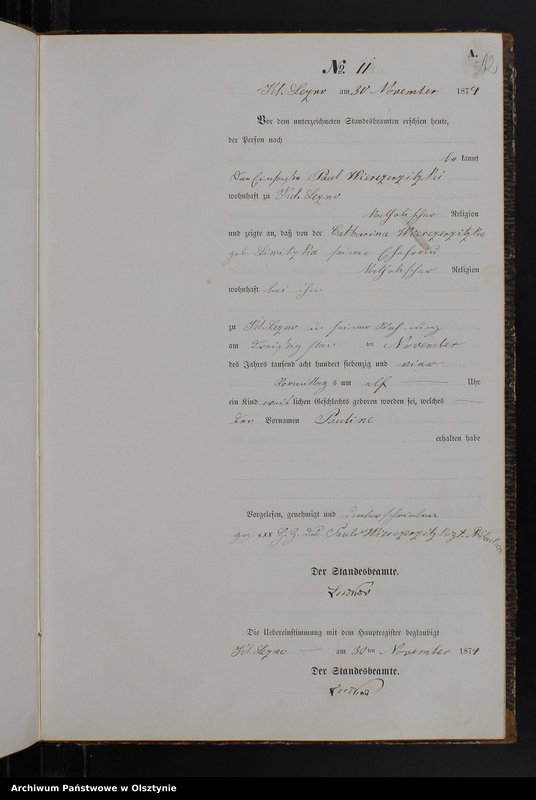 A.
No 11
Kl. Lezno am 30 November 1874
Vor dem unterzeichneten Standesbeamten erschien heute,
der Person nach
be kannt
Der Paul Wierczerzitzki
wohnhaft zu Kl. Lezno
katholischer Religion
und zeigte an, daß von der Catharina Wierczerzitzka
geb. seiner Ehefrau
katholischer Religion
wohnhaft bei ihm
zu Kl. Lezno in seiner Wohnung
am dreißigsten ten November
des Jahres tausend acht hundert siebenzig und vier
Vormittag s um elf Uhr
ein Kind weib lichen Geschlechts geboren worden sei, welches
den Vornamen Pauline
erhalten habe
Vorgelesen, genehmigt und unterschrieben
gez. xxx H. Z. des Paul Wierczerzitzki
Der Standesbeamte.
Die Uebereinstimmung mit dem Hauptregister beglaubigt
Kl. Lezno am 30 ten November 1874
Der Standesbeamte.
Archiwum Państwowe w Olsztynie